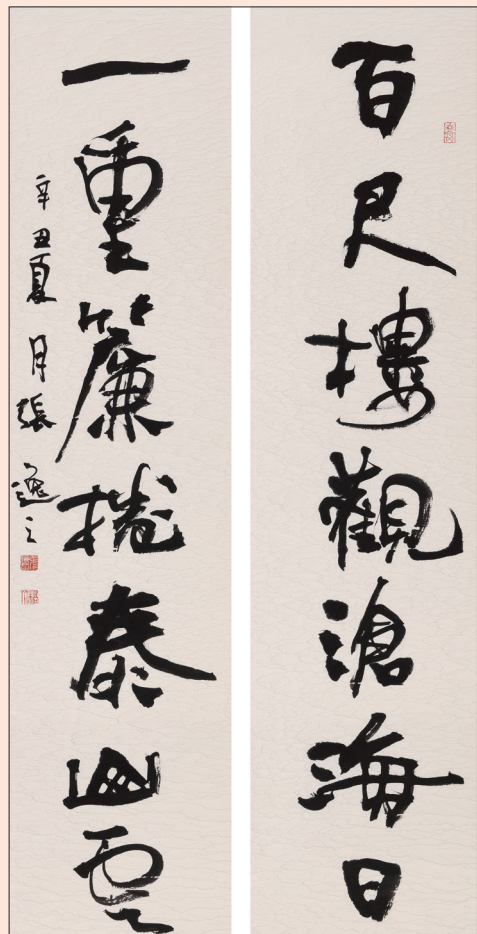 百尺樓觀滄海日
一重簾捲泰山雲
辛丑夏月張逸之